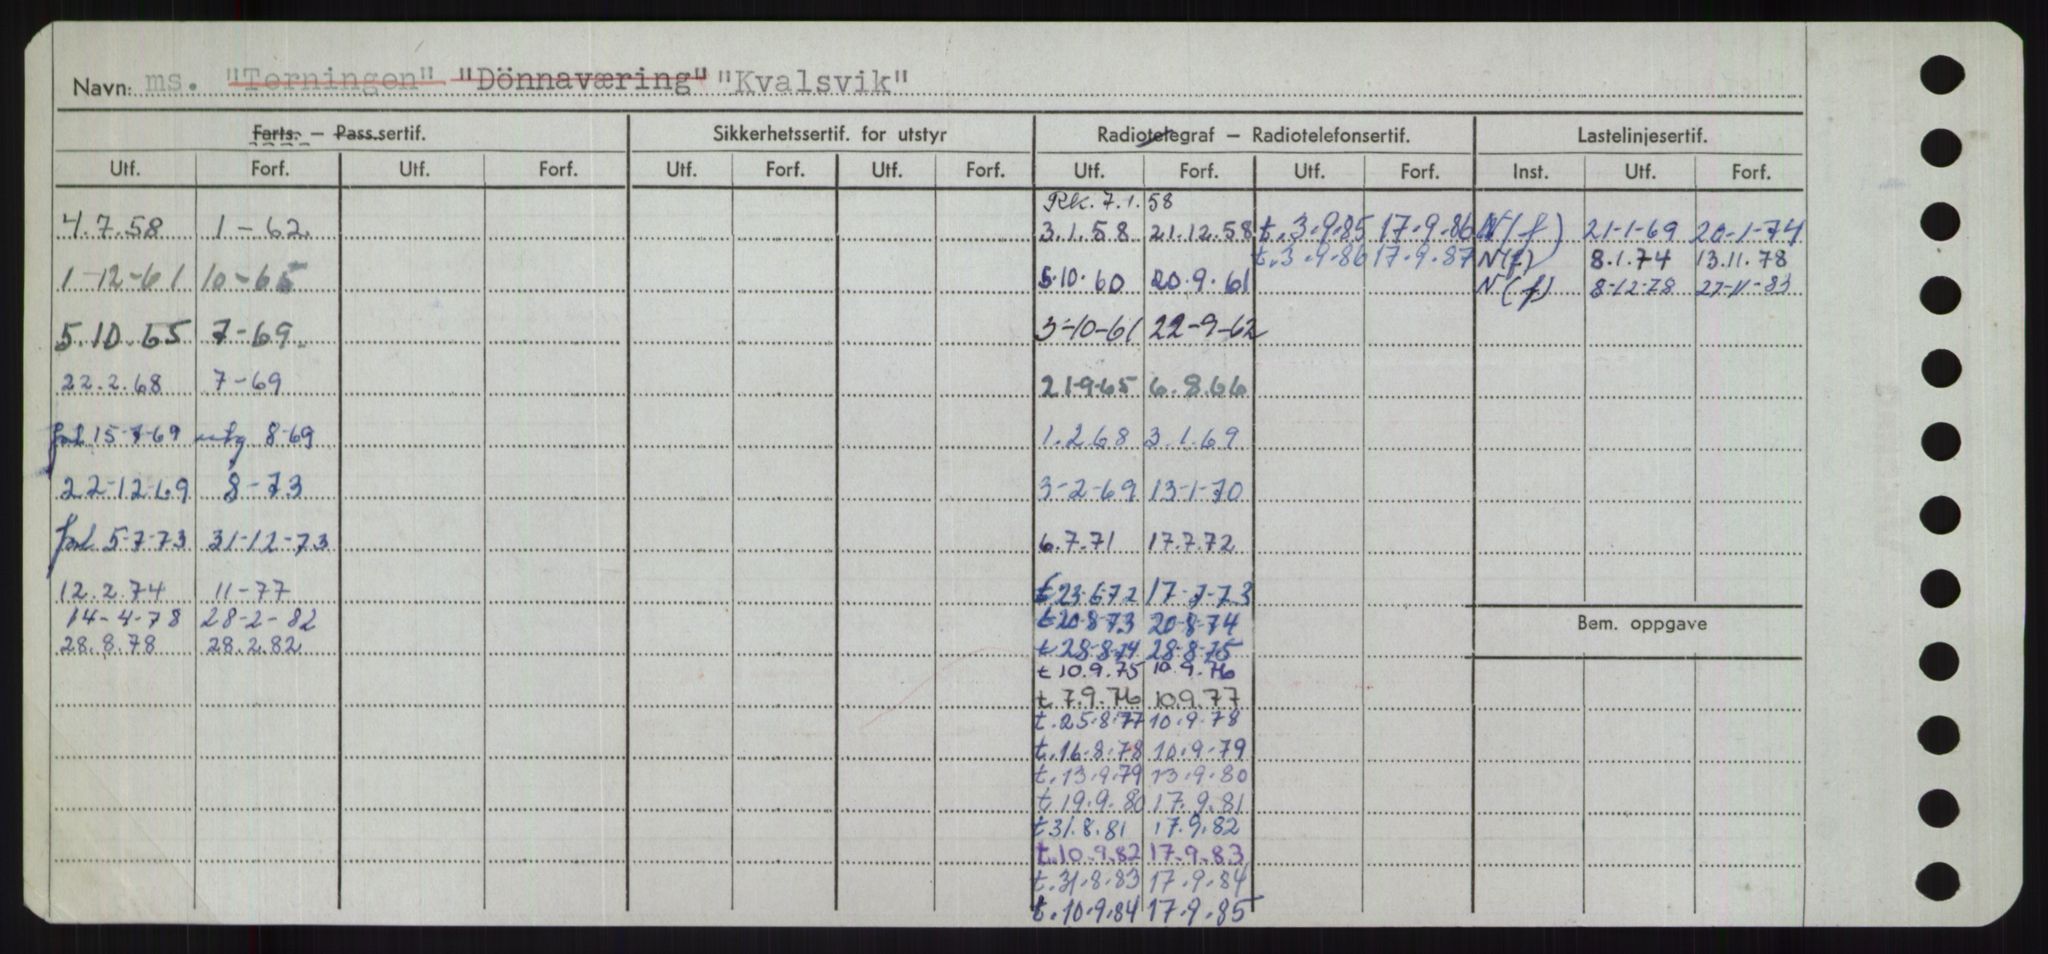 Navn: ms. "Torningen" "Dönnaværing" "Kvalsvik"
Farts. – Pass.sertif. Sikkerhetssertif. for utstyr Radiotelegraf – Radiotelefonsertif. Lastelinjesertif.
Utf. Forf. Utf. Forf. Utf. Forf. Utf. Forf. Utf. Forf. Utf. Forf. Inst. Utf. Forf.
Rk. 7.1.58
4.7.58 1-62. 3.1.58 21.12.58 t.3.9.85 17.9.86 N(f) 21-1-69 20-1-74
t.3.9.86 17.9.87 N(f) 8.1.74 13.11.78
1-12-61 10-65 5.10.60 20.9.61 N(f) 8-12-78 27-11-83
5.10.65 7-69. 3-10-61 22-9-62
22.2.68 7-69 21-9-65 6.8.66
forl 15-7-69 utg 8-69 1.2.68 3.1.69
22-12-69 8-73 3-2-69 13-1-70
forl 5-7-73 31-12-73 6.7.71 17.7.72
12.2.74 11-77 t 23.6.72 17-7-73
14-4-78 28-2-82 t 20-8-73 20-8-74
Bem. oppgave
28.8.78 28.2.82 t 28-8-74 28-8-75
t 10.9.75 10.9.76
t 7.9.76 10.9.77
t.25.8.77 10.9.78
t.16.8.78 10.9.79
t.13.9.79 13.9.80
t.19.9.80 17.9.81
t 31.8.81 17.9.82
t.10.9.82 17.9.83
t.31.8.83 17.9.84
t.10.9.84 17.9.85